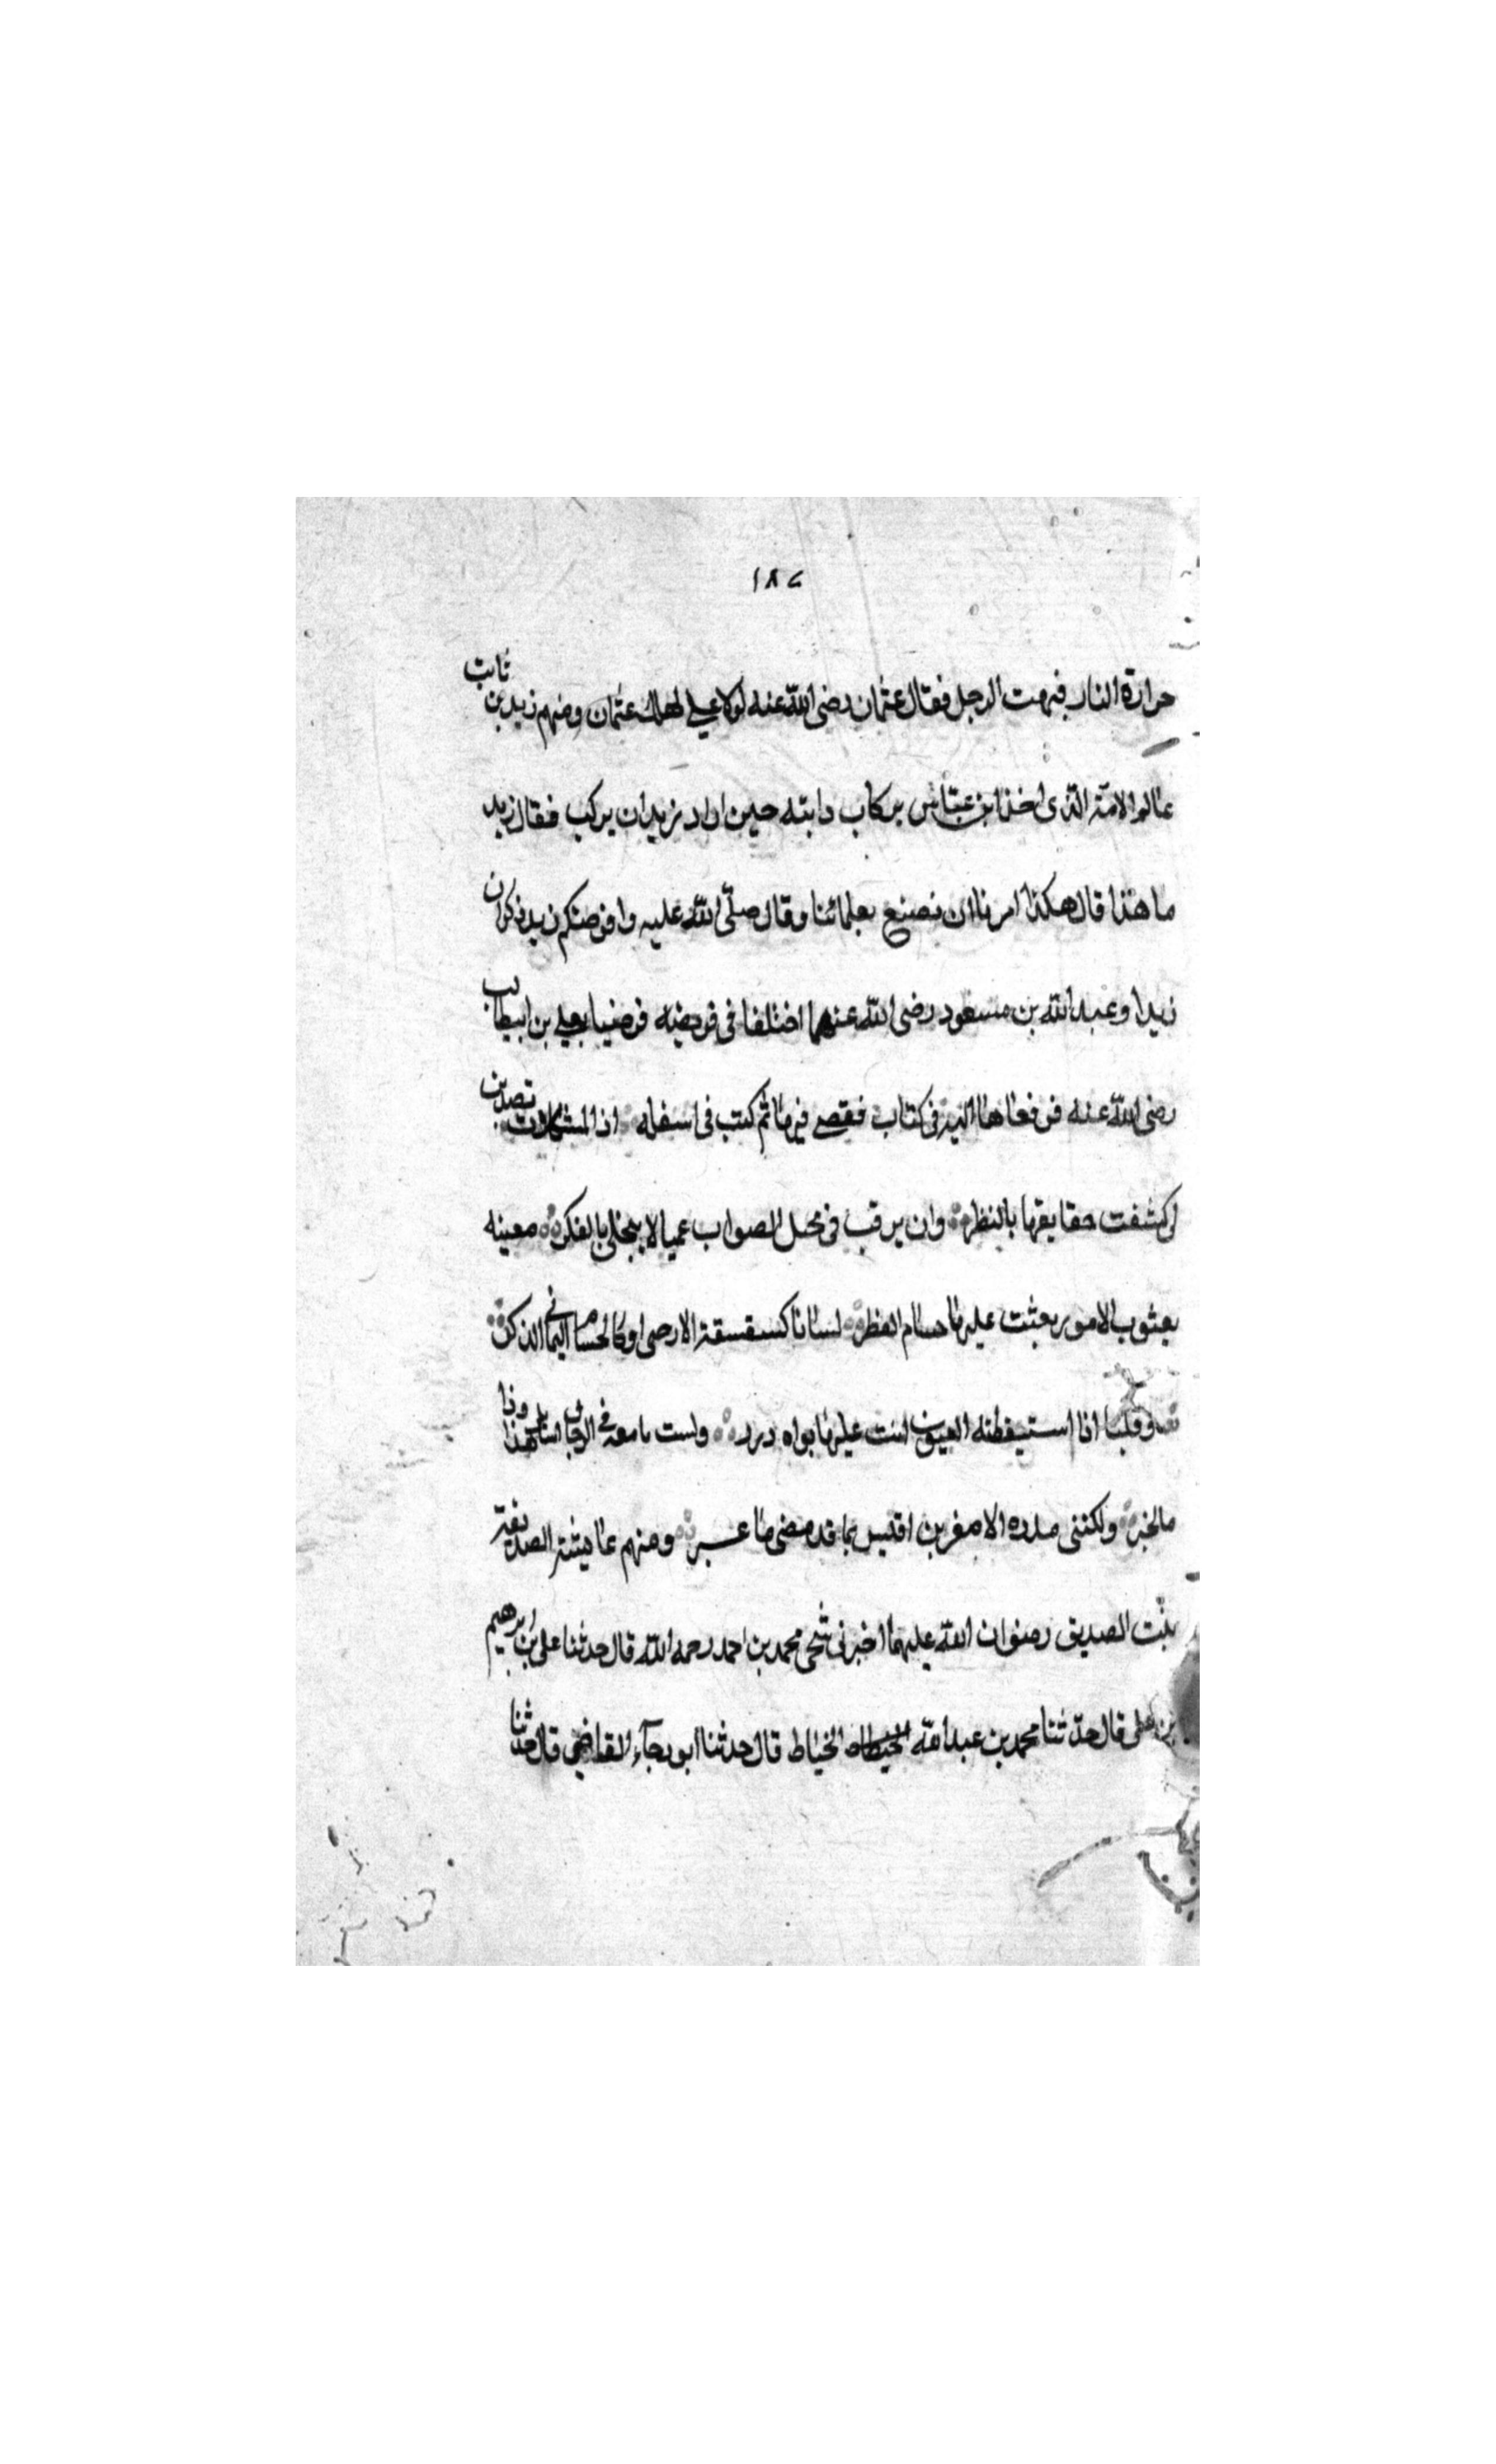 ١٨٧
حرارة النار فبهت الرجل فقال عثمان رضى الله عنه لولا على لهلك عثمان ومنهم زيد بن ثابت
عالم الامة الذى اخذ ابن عباس بركاب دابته حين اراد زيد ان يركب فقال زيد
ما هذا قال هكذا امرنا ان نصنع بعلمائنا وقال صلى الله عليه وافرضكم زيد ذكر ان
زيدا وعبد الله بن مسعود رضى الله عنهما اختلفا فى فريضة فرضيا بعلى بن ابيطالب
رضى الله عنه فرفعاها اليه فى كتاب فقضى فيها ثم كتب فى اسفله اذا المشكلات تصدين
لى كشفت حقايقها بالنظر وان برقت فى محل الصواب عميا لا يجتلى بالفكر معينه
بعثوب الامور بعثت عليها حسام النظر لسانا كسقسقة الارحى او كالحسام اليمانى الذكر
وقلبا اذا استيقظته العيون ابنت عليها بواه درر ولست بامعة فى الرجال اسايل هذا وذا
مالخبر ولكننى مدره الاصغرين اقيس بما قد مضى ما عبر ومنهم عايشة الصديقة
بنت الصديق رضوان الله عليهما اخبرنى شيخى محمد بن احمد رحمه الله قال حدثنا على بن ابرهيم
بن على قال حدثنا محمد بن عبد الله الخياط قال حدثنا ابو رجآء القاضى قال حدثنا